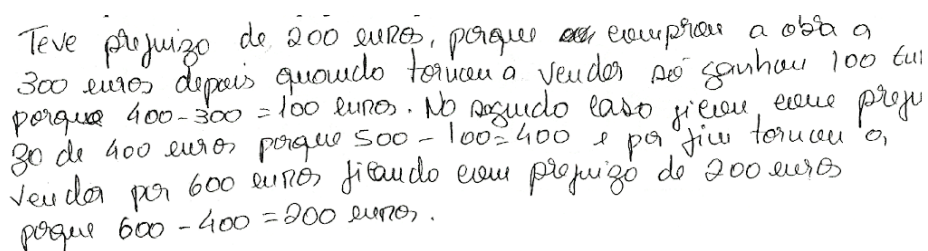 Teve prejuizo de 200 euros, porque comprou a obra a
300 euros depois quando tornou a vender só ganhou 100 eur
porque 400-300=100 euros. No segundo caso ficou com preju
zo de 400 euros porque 500-100=400 e por fim tornou a
vender por 600 euros ficando com prejuizo de 200 euros
porque 600-400=200 euros.